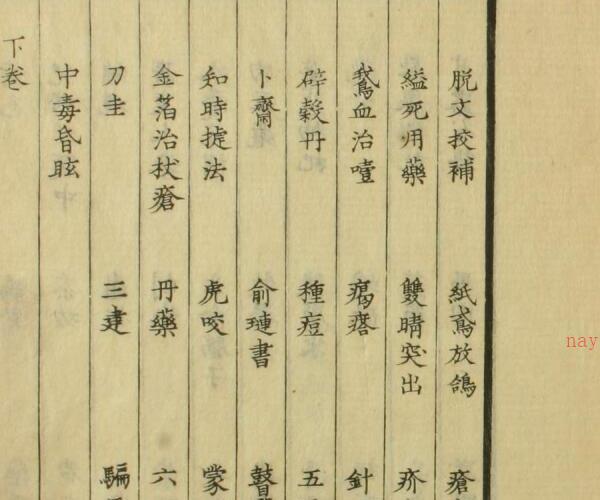 脱文挍補 紙鳶放鴿 瘡
縊死用藥 雙睛突出 疥
鵞血治噎 針
辟穀丹 種痘 五
卜齋 俞璉書 瞽
知時捷法 虎咬 蒙
金箔治杖瘡 丹藥 六
刀圭 三建 騙
中毒昏眩
下卷
nay